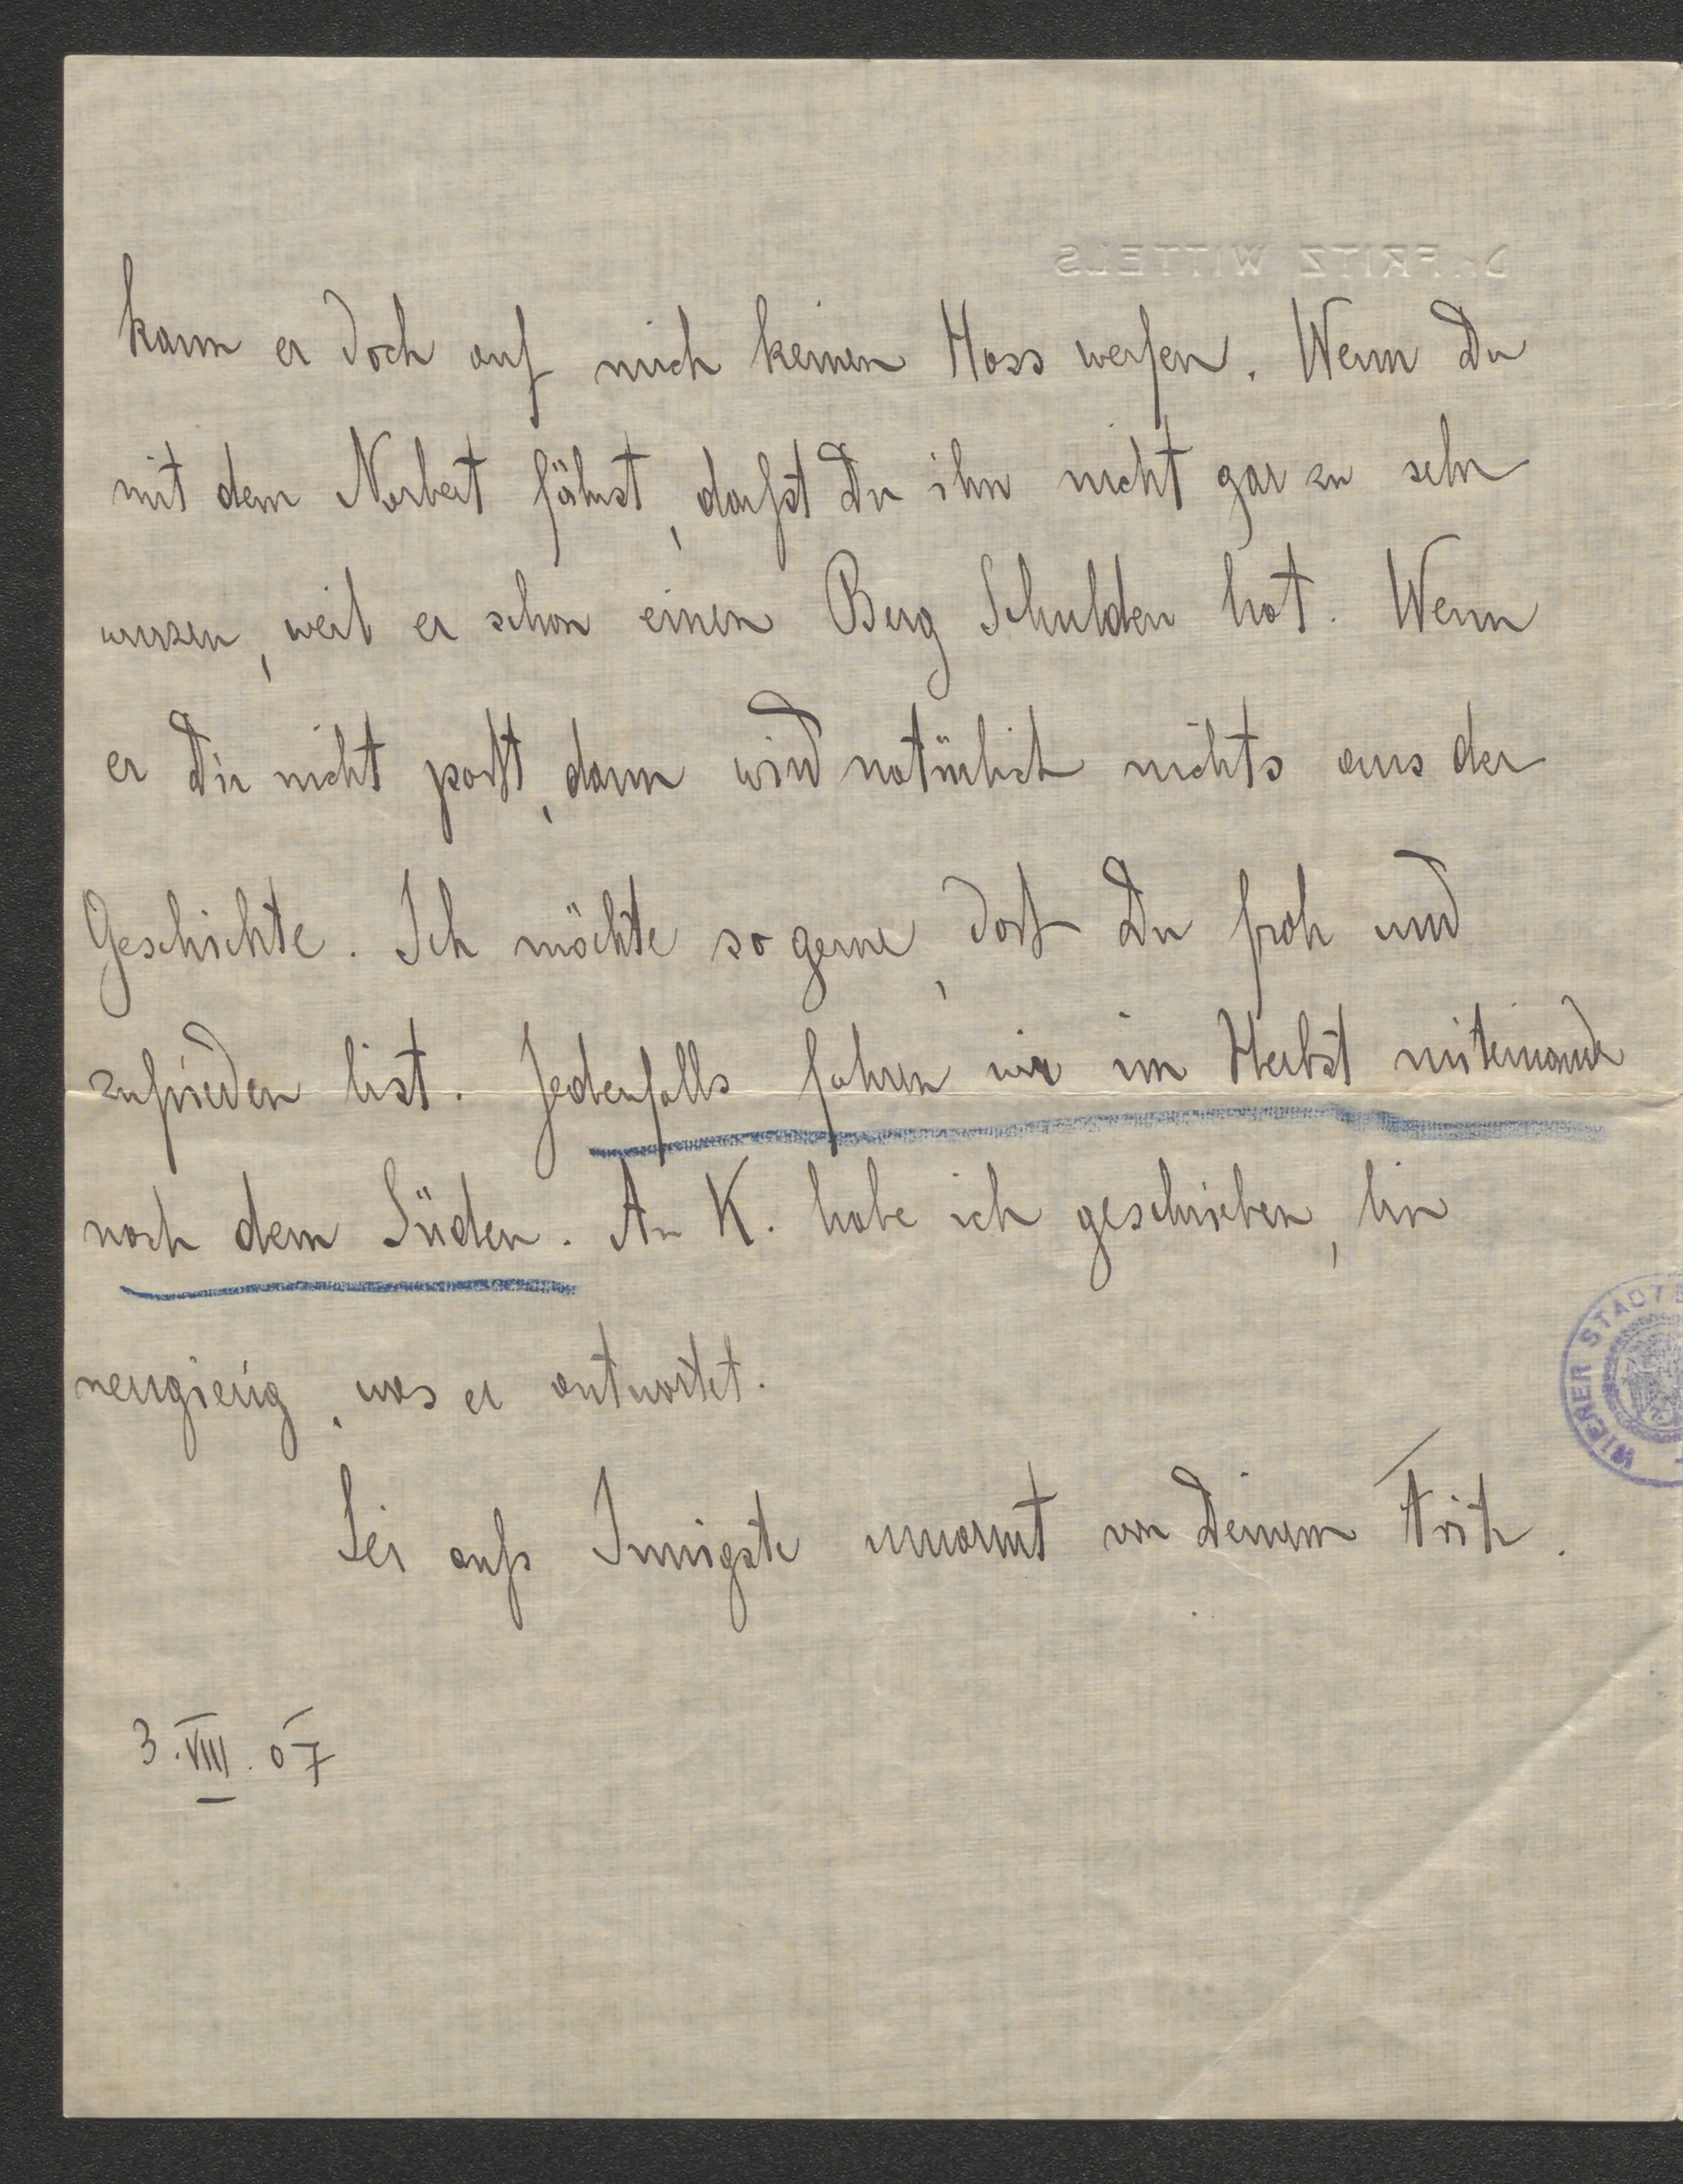 Dr. FRITZ WITTELS
kann er doch auf mich keinen Hass werfen. Wenn Du
mit dem Norbert fährst, darfst Du ihn nicht gar zu sehr
wurzen, weil er schon einen Berg Schulden hat. Wenn
er Dir nicht paßt, dann wird natürlich nichts aus der
Geschichte. Ich möchte so gerne, daß Du froh und
zufrieden bist. Jedenfalls fahren wir im Herbst miteinander
nach dem Süden. An K. habe ich geschrieben, bin
neugierig, was er antwortet.
WIENER STADT
Sei aufs Innigste umarmt von Deinem Fritz.
3.VIII.07